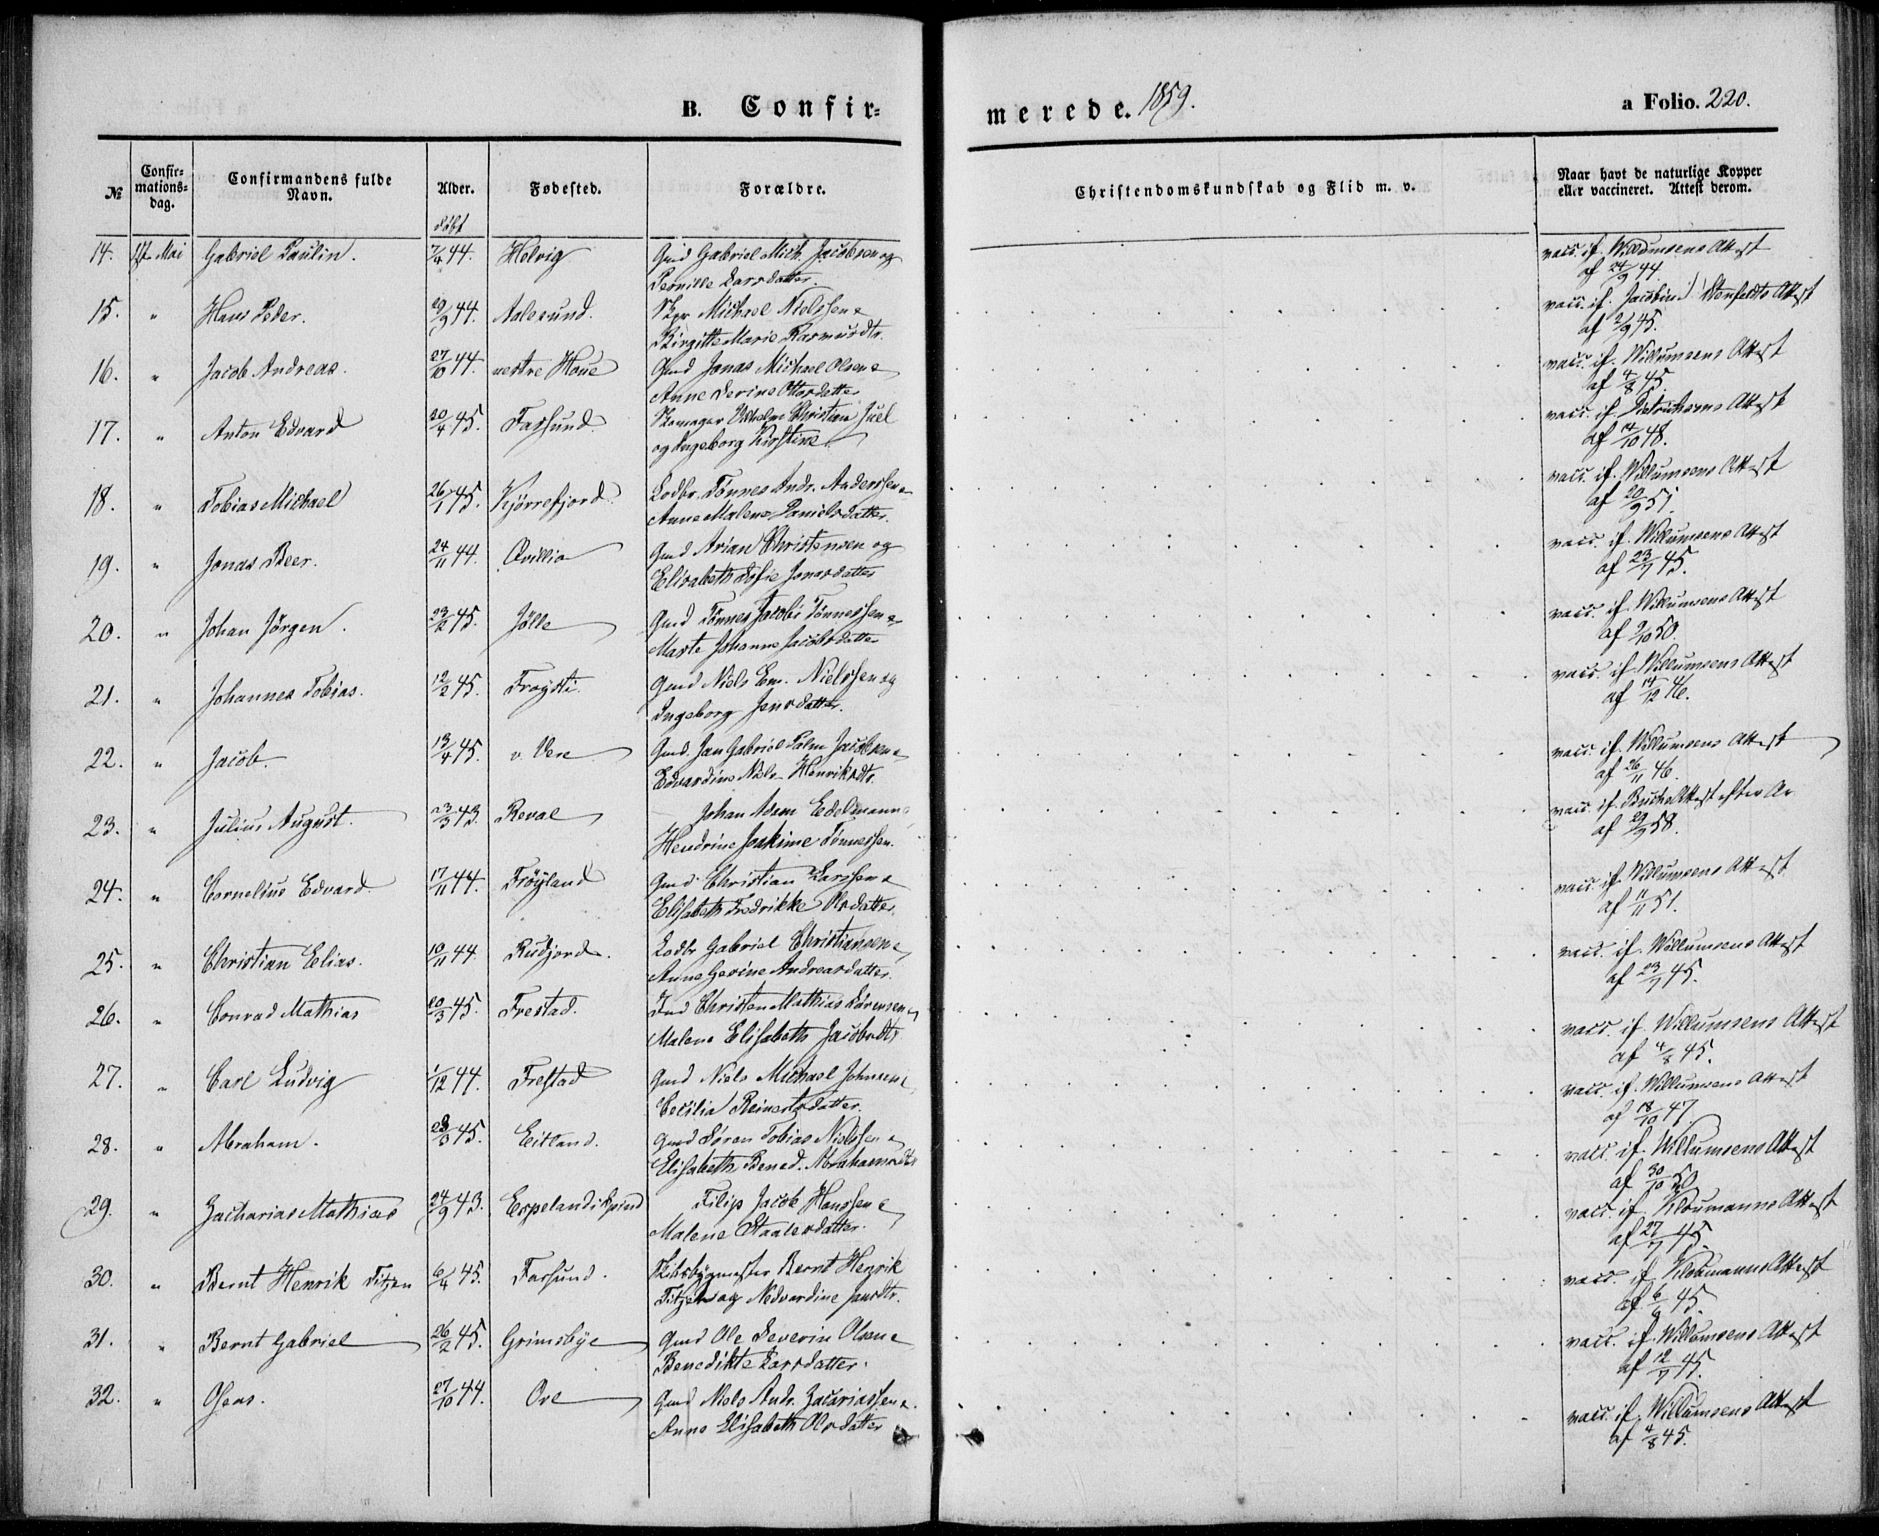 B. Confir=
merede. 1859.
a Folio. 220.
№
Confir=
mations=
dag.
Confirmandens fulde
Navn.
Alder.
døbt
Fødested.
Forældre.
Christendomskundskab og Flid m. v.
Naar havt de naturlige Kopper
eller vaccineret. Attest derom.
14. Mai Gabriel Paulin. 7/4 44. Helvig Gmd Gabriel Mich. Jacobsen og
Pernille Larsdatter.
vacc. if. Willumsens Attest
af 24/9 44
15. " Hans Peder. 29/9 44. Aalesund. Skpr Michael Nielssen &
Birgitte Marie Rasmusdtr.
vacc. if. Jacobine Stenfeldts Attest
af 2/9 45.
16. " Jacob Andreas. 27/10 44. vestre Houe Gmd Jonas Michael Olsen &
Anne Serine Ottosdatter
vacc. if. Willumsens Attest
af 4/8 45.
17. " Anton Edvard 20/4 45. Farsund. Vilhelm Christian Juel
og Ingeborg Kirstine
vacc. if. Attest
af 14/10 48.
18. " Tobias Michael 26/1 45. Kjørrefjord. Lodsr. Tønnes Andr. Anderssen &
Anne Malene Danielsdatter.
vacc. if. Willumsens Attest
af 20/9 51.
19. " Jonas Beer. 24/11 44. Qvillia Gmd Arian Christensen og
Elisabeth Sofie Jonasdatter
vacc. if. Willumsens Attest
af 23/7 45.
20. " Johan Jörgen. 23/2 45. Jölle Gmd Tönnes Jacobi Tönnessen &
Marte Johanne Jacobsdatter
vacc. if. Willumsens Attest
af 2/10 50.
21. " Johannes Tobias. 12/2 45. Frøysti. Gmd Niels Em. Nielssen og
Ingeborg Jensdatter.
vacc. if. Willumsens Attest
af 14/12 46.
22. " Jacob. 13/4 45. v. Vere Gmd. Jan Gabriel Palm Jacobsen &
Edvardine Niels Henriksdtr.
vacc. if. Willumsens Attest
af 26/11 46.
23. " Julius August. 23/3 43. Reval Johan Adam Eedelmann &
Hendrine Joakime Tönnessen.
vacc. if. Buchs Attest efter Ar
af 29/9 58.
24. " Cornelius Edvard. 17/11 44. Frøyland Gmd. Christian Larssen &
Elisabeth Fredrikke Olsdatter
vacc. if. Willumsens Attest
af 11/11 51.
25. " Christian Elias. 10/11 44. Rudjord. Lodsr Gabriel Christiansen &
Anne Gesine Andreasdatter.
vacc. if. Willumsens Attest
af 23/7 45.
26. " Conrad Mathias 20/3 45. Frestad. Ind Christen Mathias Sørensen &
Malene Elisabeth Jacobsdtr
vacc. if. Willumsens Attest
af 4/8 45.
27. " Carl Ludvig 1/12 44. Frestad Gmd Niels Michael Johnsen &
Cecilia Reinertsdatter.
vacc. if. Willumsens Attest
af 18/10 47.
28. " Abraham. 23/3 45. Eitland. Gmd Søren Tobias Nielssen &
Elisabeth Bened. Abrahamsdtr
vacc. if. Willumsens Attest
af 30/10 50
29. " Zacharias Mathias 24/9 43. Espeland i Spind Filip Jacob Hanssen &
Malene Staalesdatter.
vacc. if. Kloumanns Attest
af 27/7 45.
30. " Bernt Henrik Titzen 6/4 45. Farsund. Skibsbygmester Bernt Henrik
Titzen og Nedvardine Jansdtr.
vacc. if Kloumanns Attest
af 6/9 45.
31. " Bernt Gabriel 26/2 45. Grimsbye Gmd Ole Severin Olsen &
Benedikte Larsdatter.
vacc. if. Willumsens Attest
af 12/7 45.
32. " Osear. 27/10 44. Ore Gmd Niels Andr. Zacariassen &
Anne Elisabeth Olsdatter
vacc. if. Willumsens Attest
af 4/8 45.